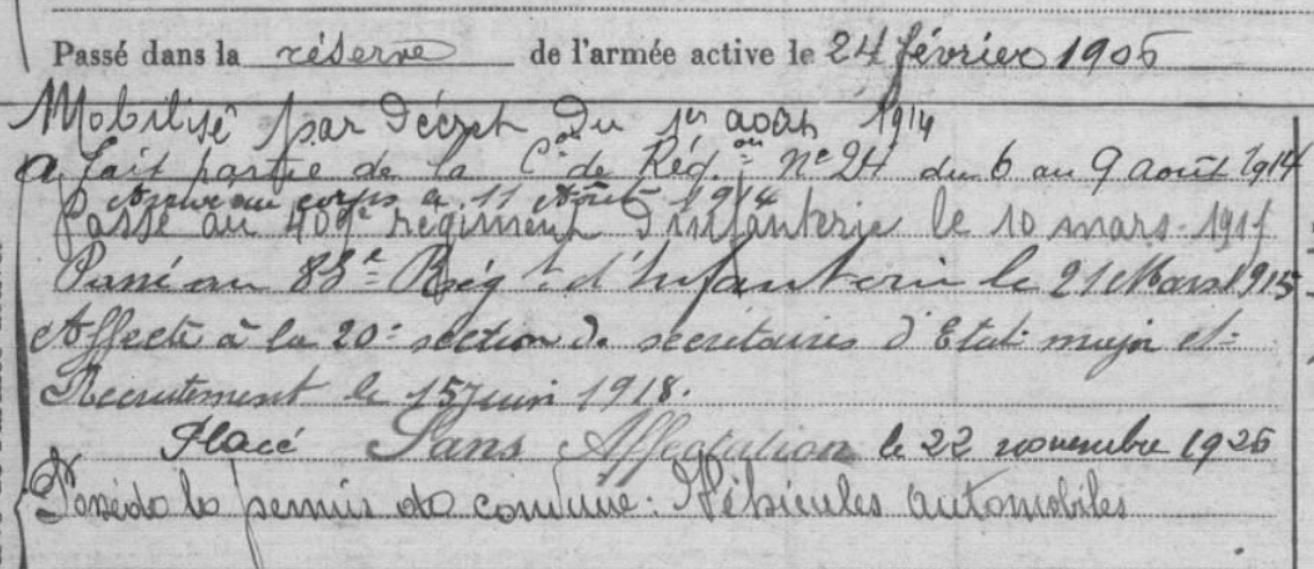 Passé dans la réserve de l'armée active le 24 février 1906
Mobilisé par Décret du 1er août 1914
a fait partie de la Cie de Rég.on N° 24 du 6 au 9 août 1914
Arrivé au corps le 11 Août 1914
passé au 409e régiment d'infanterie le 10 mars 1915
Passé au 83e Régt d'Infanterie le 21 Mars 1915
Affecté à la 20e section de secrétaires d'Etat major et
Recrutement le 15 Juin 1918.
Placé Sans Affectation le 22 novembre 1926
Possède le permis de conduire : Véhicules automobiles